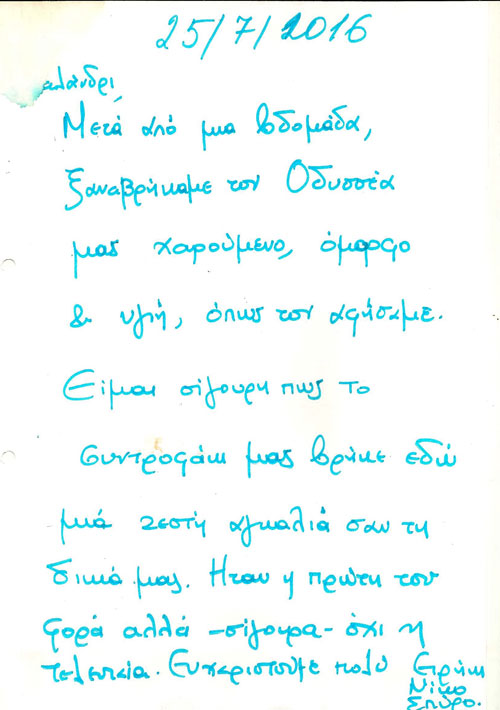 25/7/2016
αλάνδρι,
Μετά από μια βδομάδα,
ξαναβρήκαμε τον Οδυσσέα
μας χαρούμενο, όμορφο
& υγιή, όπως τον αφήσαμε.
Είμαι σίγουρη πως το
συντροφάκι μας βρήκε εδώ
μιά ζεστή αγκαλιά σαν τη
δική μας. Ηταν η πρώτη του
φορά αλλά -σίγουρα- όχι η
τελευταία. Ευχαριστούμε πολύ Ειρήνη
Νίκο
Σπύρο.